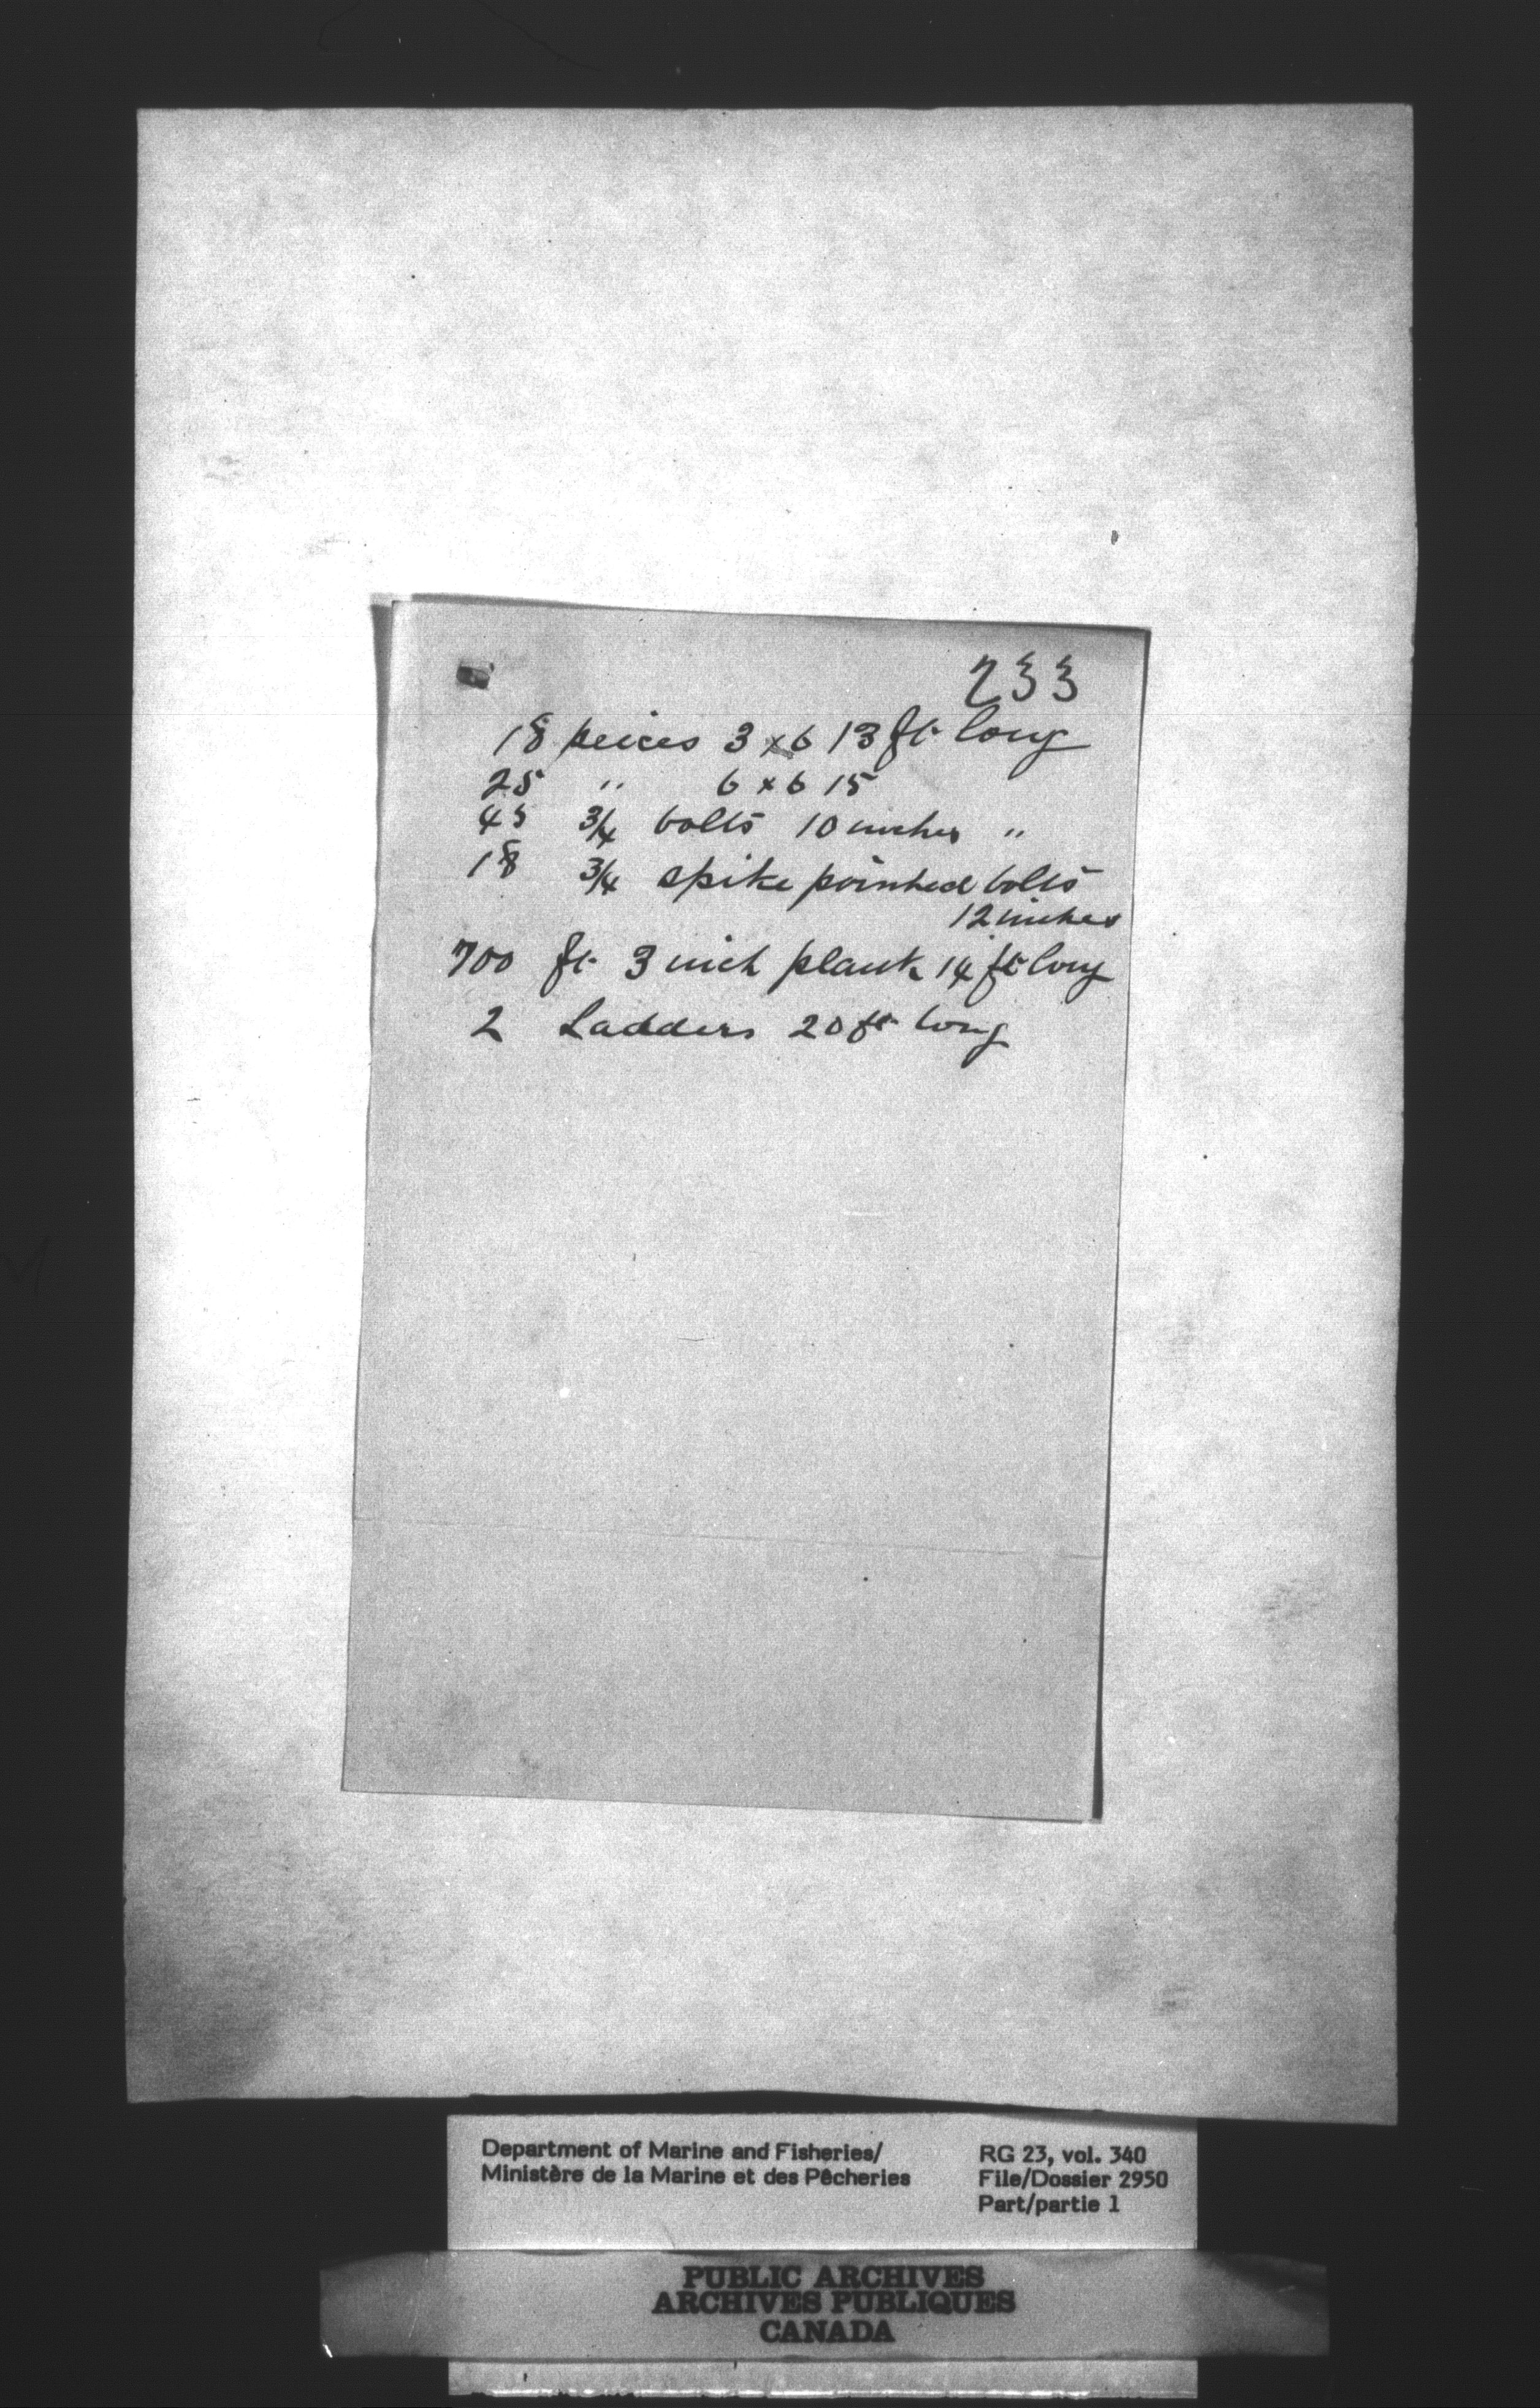 233
18 peices 3 x 6 13 ft long
25 " 6 x 6 15
45 3/4 bolts 10 inches "
18 3/4 spike pointed bolts
12 inches
700 ft 3 inch plank 14 ft long
2 Ladders 20 ft long
Department of Marine and Fisheries/
Ministère de la Marine et des Pêcheries
RG 23, vol. 340
File/Dossier 2950
Part/partie 1
PUBLIC ARCHIVES
ARCHIVES PUBLIQUES
CANADA